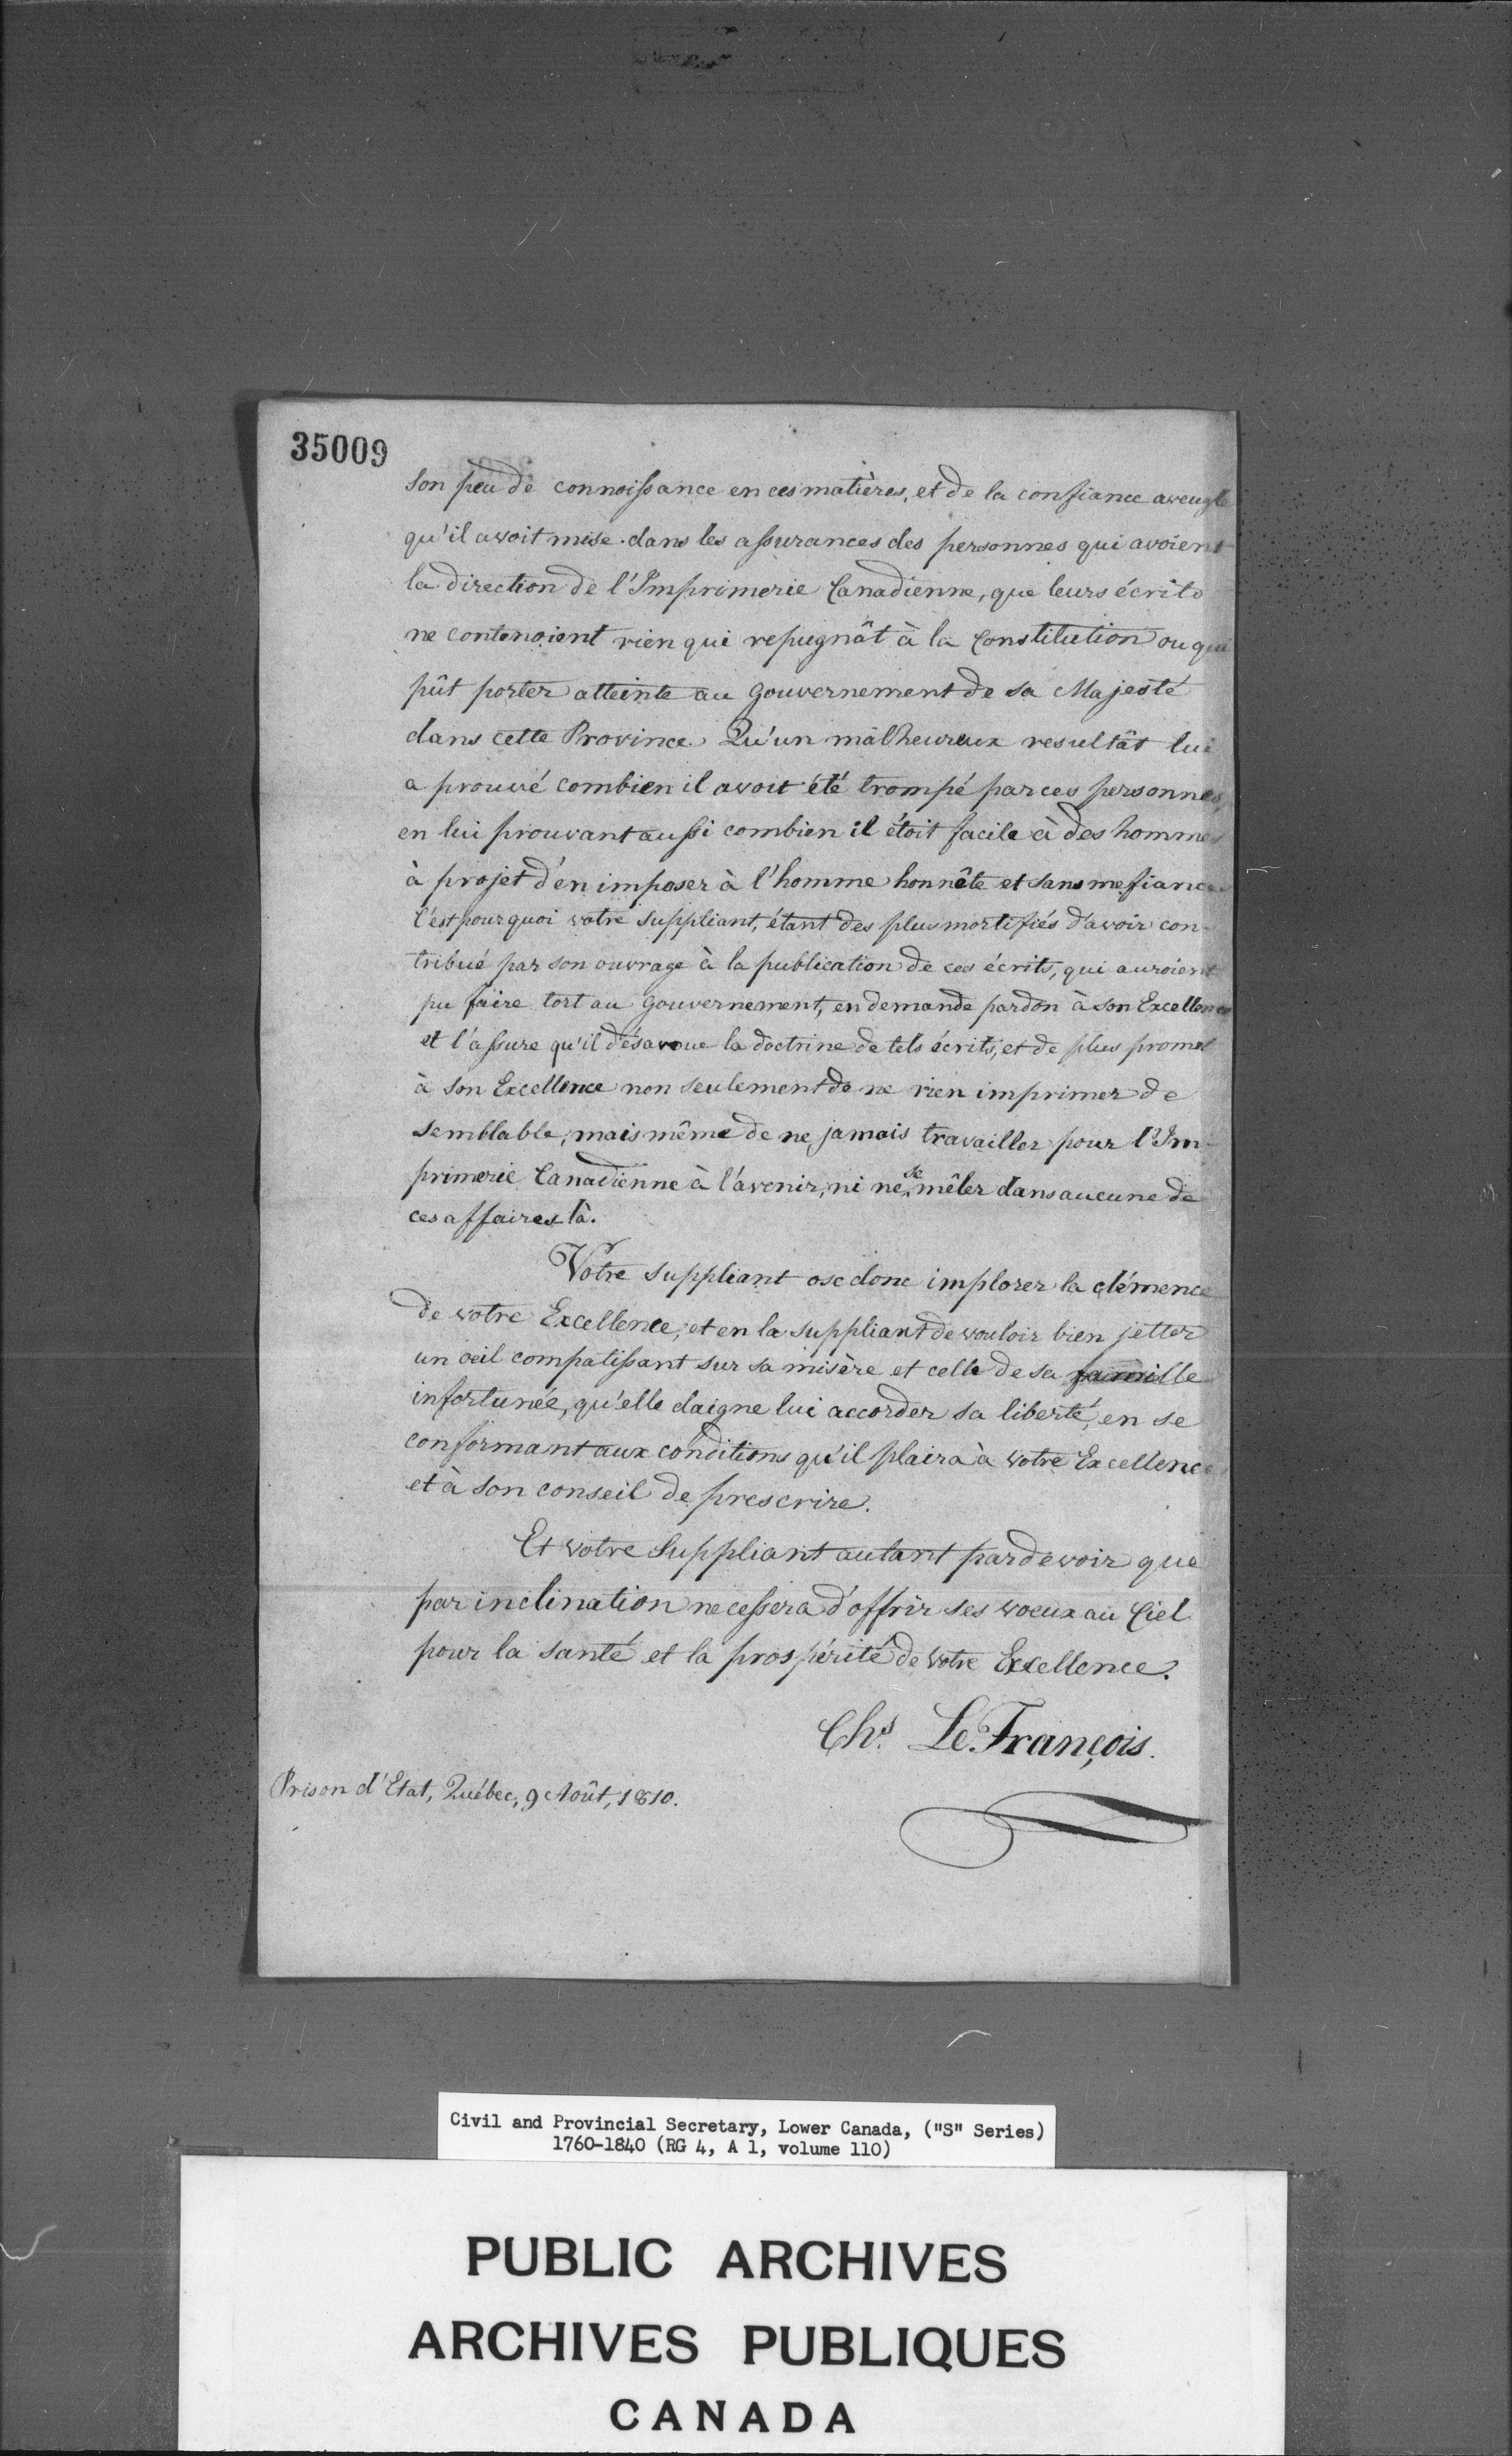 35009
son peu de connoissance en ces matières, et de la confiance aveugle
qu'il avoit mise dans les assurances des personnes qui avoient
la direction de l'Imprimerie Canadienne, que leurs écrits
ne contenoient rien qui repugnât à la Constitution ou qui
pût porter atteinte au Gouvernement de sa Majesté
dans cette Province. Qu'un malheureux resultât lui
a prouvé combien il avoit été trompé par ces personnes,
en lui prouvant aussi combien il étoit facile à des hommes
à projet d'en imposer à l'homme honnête et sans mefiance
C'est pourquoi votre suppliant, étant des plus mortifiés d'avoir con-
tribué par son ouvrage à la publication de ces écrits, qui auroient
pu faire tort au Gouvernement, en demande pardon à son Excellence
et l'assure qu'il désavoue la doctrine de tels écrits, et de plus promet
à son Excellence non seulement de ne rien imprimer de
semblable, mais même de ne jamais travailler pour l'Im-
primerie Canadienne à l'avenir, ni ne se mêler dans aucune de
ces affaires là.
Votre suppliant ose donc implorer la clémence
de votre Excellence, et en la suppliant de vouloir bien jetter
un oeil compatissant sur sa misère et celle de sa famille
infortunée, qu'elle daigne lui accorder sa liberté, en se
conformant aux conditions qu'il plaira à votre Excellence
et à son conseil de prescrire.
Et votre Suppliant autant par devoir que
par inclination ne cessera d'offrir ses voeux au Ciel
pour la santé et la prospérité de votre Excellence.
Chs. Le François.
Prison d'Etat, Québec, 9 Août, 1810.
Civil and Provincial Secretary, Lower Canada, ("S" Series)
1760-1840 (RG 4, A 1, volume 110)
PUBLIC ARCHIVES
ARCHIVES PUBLIQUES
CANADA